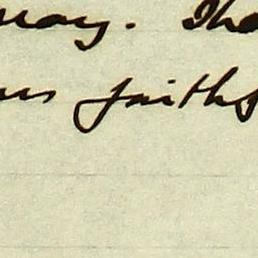 may. Tha
urs faithf